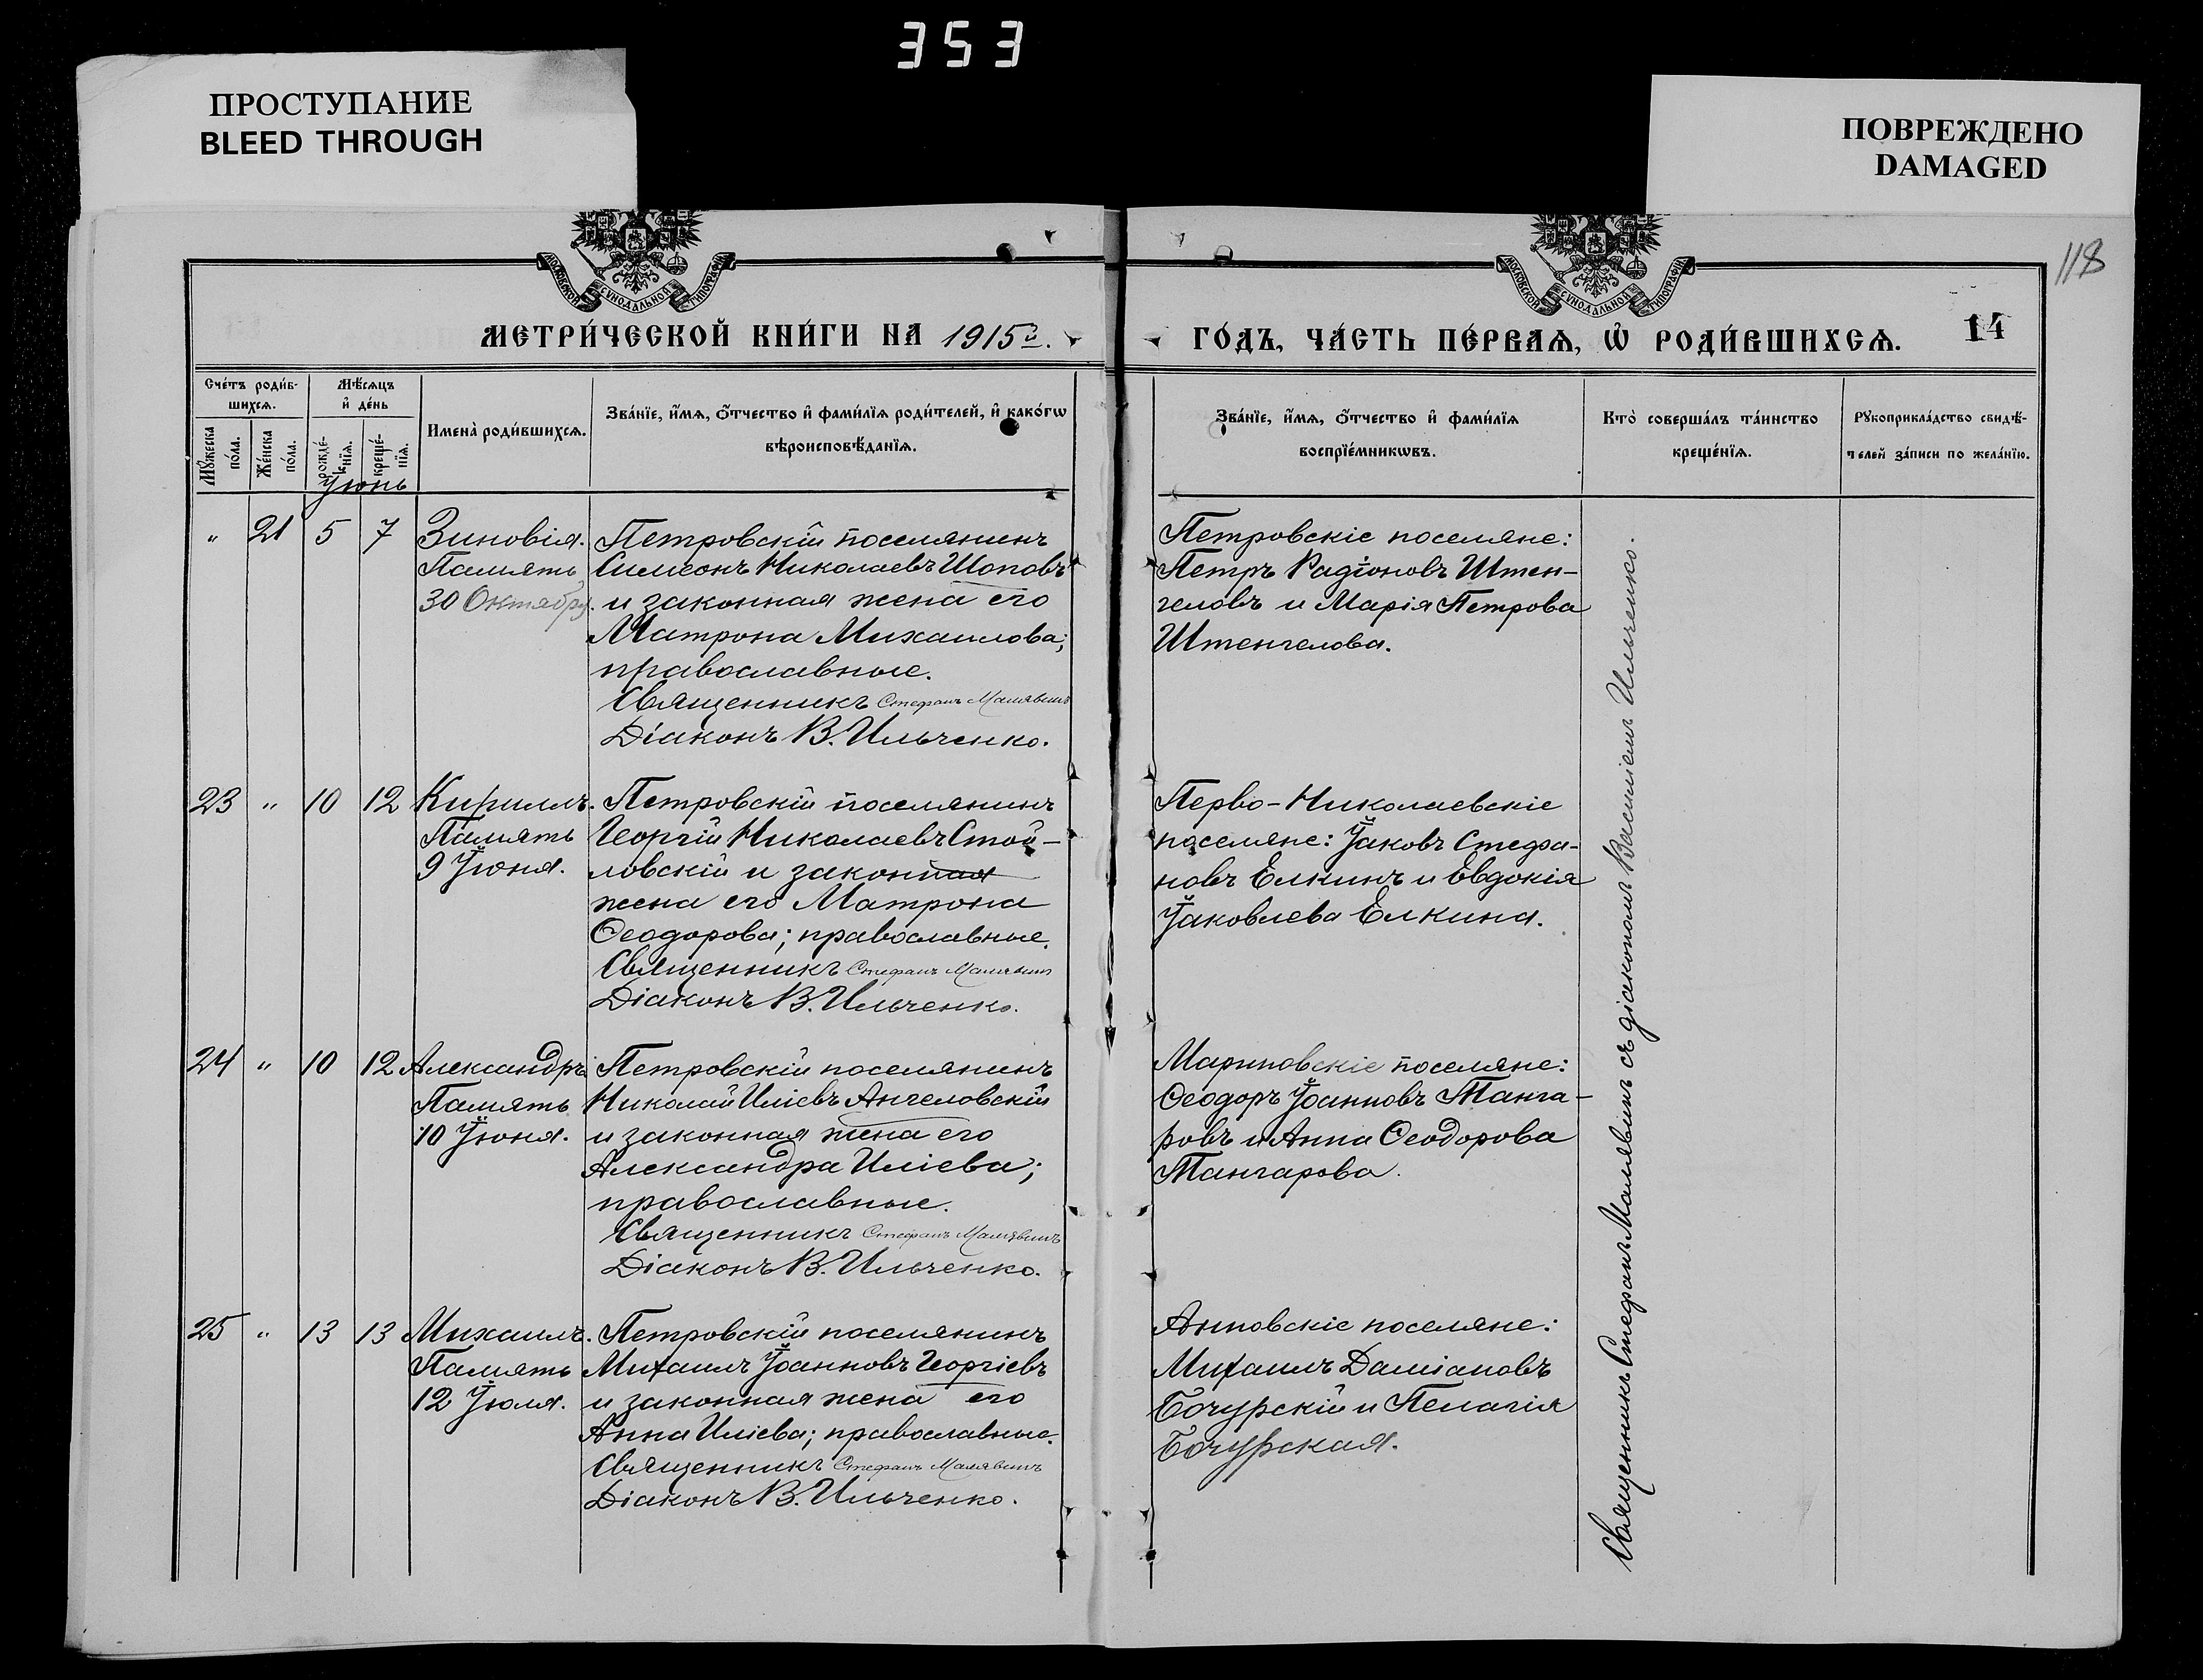 353
ПРОСТУПАНИЕ
BLEED THROUGH
ПОВРЕЖДЕНО
DAMAGED
118
МОСКОВСКОЙ СѴНОДАЛЬНОЙ ТИПОГРАФІИ
МОСКОВСКОЙ СѴНОДАЛЬНОЙ ТИПОГРАФІИ
МЕТРИ́ЧЕСКОЙ КНИ́ГИ НА 1915й.
ГО́ДЪ, ЧА́СТЬ ПЕ́РВАѦ, Ѡ҆ РОДИ́ВШИХСѦ.
14
Сче́тъ роди́в-
шихсѧ.
Мꙋ́жеска по́ла.
Же́нска по́ла.
Мѣ́сѧцъ
и҆ де́нь
рожде́-
нїѧ.
креще́-
нїѧ.
Имена̀ роди́вшихсѧ.
Зва́нїе, и҆́мѧ, ѻ҆́тчество и҆ фами́лїѧ роди́телей, и҆ како́гѡ
вѣроисповѣ́данїѧ.
Зва́нїе, и҆́мѧ, ѻ҆́тчество и҆ фами́лїѧ
воспрїе́мникѡвъ.
Кто̀ соверша́лъ та́инство
креще́нїѧ.
Рꙋкоприкла́дство свидѣ́-
телей за́писи по жела́нїю.
Іюнь
„ 21 5 7
Зиновія.
Память
30 Октября.
Петровскій поселянинъ
Симеонъ Николаевъ Шоповъ
и законная жена его
Матрона Михаилова;
православные.
Священникъ Стефанъ Малявинъ
Діаконъ В. Ильченко.
Петровскіе поселяне:
Петръ Радіоновъ Штен-
геловъ и Марія Петрова
Штенгелова.
23 „ 10 12
Кириллъ.
Память
9 Іюня.
Петровскій поселянинъ
Георгій Николаевъ Стой-
ловскій и законная
жена его Матрона
Ѳеодорова; православные.
Священникъ Стефанъ Малявинъ
Діаконъ В. Ильченко.
Перво-Николаевскіе
поселяне: Іаковъ Стефа-
новъ Елкинъ и Евдокія
Іаковлева Елкина.
24 „ 10 12
Александръ
Память
10 Іюня.
Петровскій поселянинъ
Николай Иліевъ Ангеловскій
и законная жена его
Александра Иліева;
православные.
Священникъ Стефанъ Малявинъ
Діаконъ В. Ильченко.
Мариновскіе поселяне:
Ѳеодоръ Іоанновъ Танга-
ровъ и Анна Ѳеодорова
Тангарова.
25 „ 13 13
Михаилъ.
Память
12 Іюля.
Петровскій поселянинъ
Михаилъ Іоанновъ Георгіевъ
и законная жена его
Анна Иліева; православные.
Священникъ Стефанъ Малявинъ
Діаконъ В. Ильченко.
Анновскіе поселяне:
Михаилъ Даміановъ
Бочурскій и Пелагія
Бочурская.
Священникъ Стефанъ Малявинъ съ діакономъ Василіемъ Ильченко.